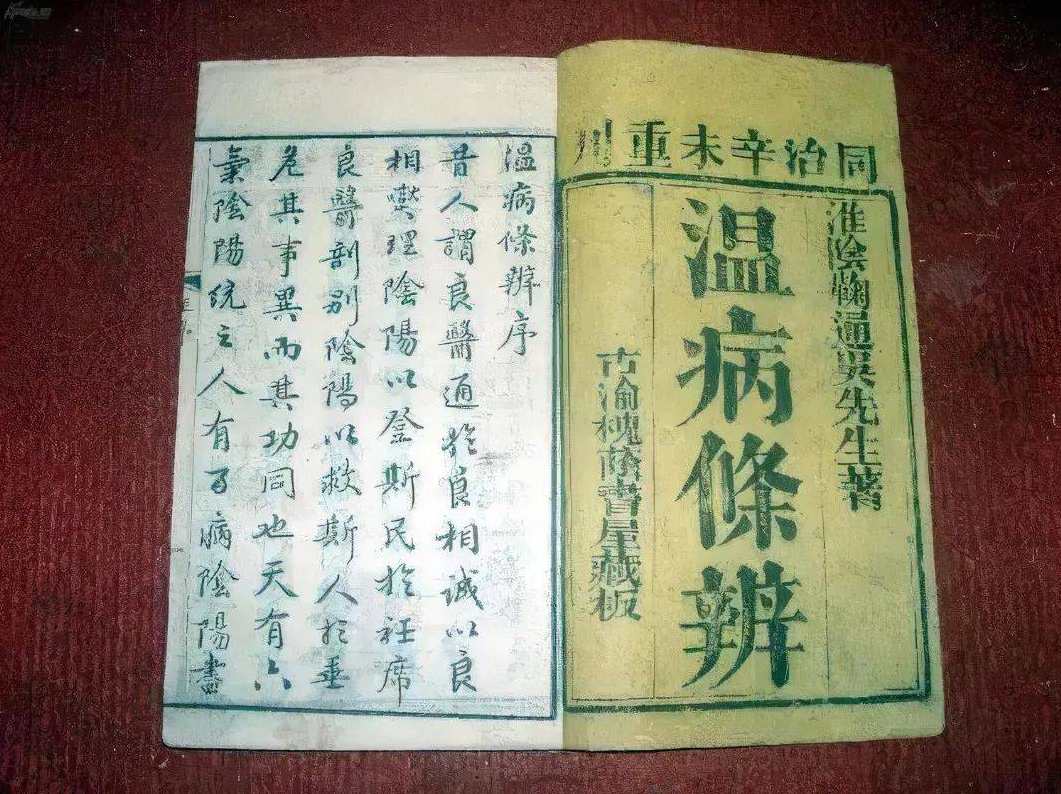 同治辛未重刊
淮陰鞠通吳先生著
温病條辨
古渝槐蔭書屋藏板
溫病條辨序
昔人謂良醫通於良相誠以良
相燮理陰陽以登斯民於衽席
良醫剖別陰陽以救斯人於垂
危其事異而其功同也天有六
氣陰陽統之人有百病陰陽盡